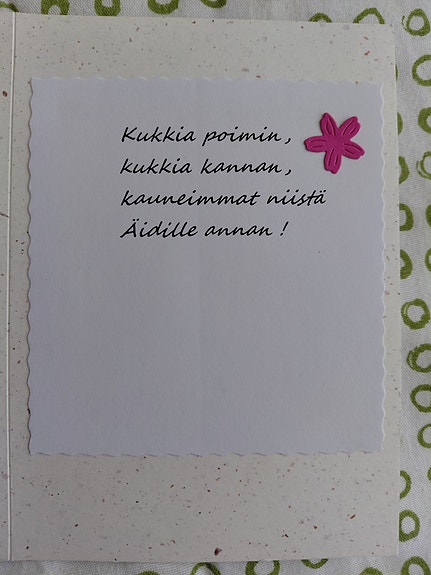 Kukkia poimin,
kukkia kannan,
kauneimmat niistä
Äidille annan !